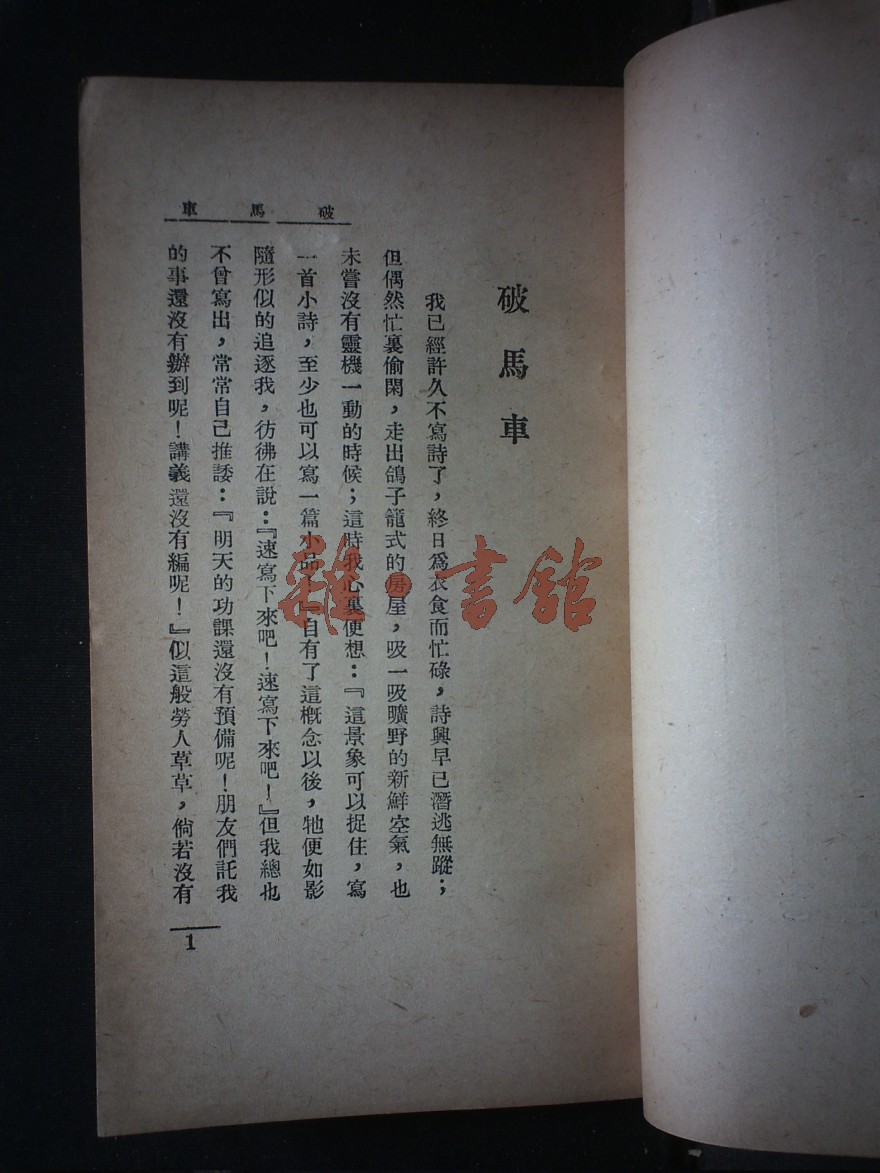 破馬車
破馬車
我已經許久不寫詩了，終日爲衣食而忙碌，詩興早已潛逃無蹤；
但偶然忙裏偷閑，走出鴿子籠式的房屋，吸一吸曠野的新鮮空氣，也
未嘗沒有靈機一動的時候；這時我心裏便想：『這景象可以捉住，寫
一首小詩，至少也可以寫一篇小品！』自有了這概念以後，牠便如影
隨形似的追逐我，彷彿在說：『速寫下來吧！速寫下來吧！』但我總也
不曾寫出，常常自己推諉：『明天的功課還沒有預備呢！朋友們託我
的事還沒有辦到呢！講義還沒有編呢！』似這般勞人草草，倘若沒有
1
雜·書館